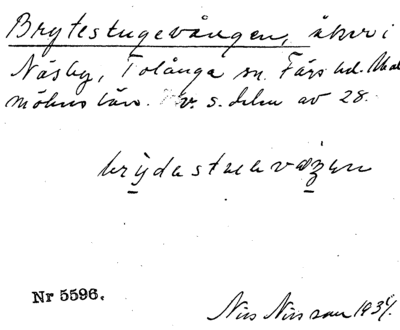 Brytestugevången, åker i
Näsby, Tolånga sn. Färs hd. Mal
möhus län. v. s. delen av 28.
brydastuevaŋen
Nr 5596.
Nils Nilsson 1934.